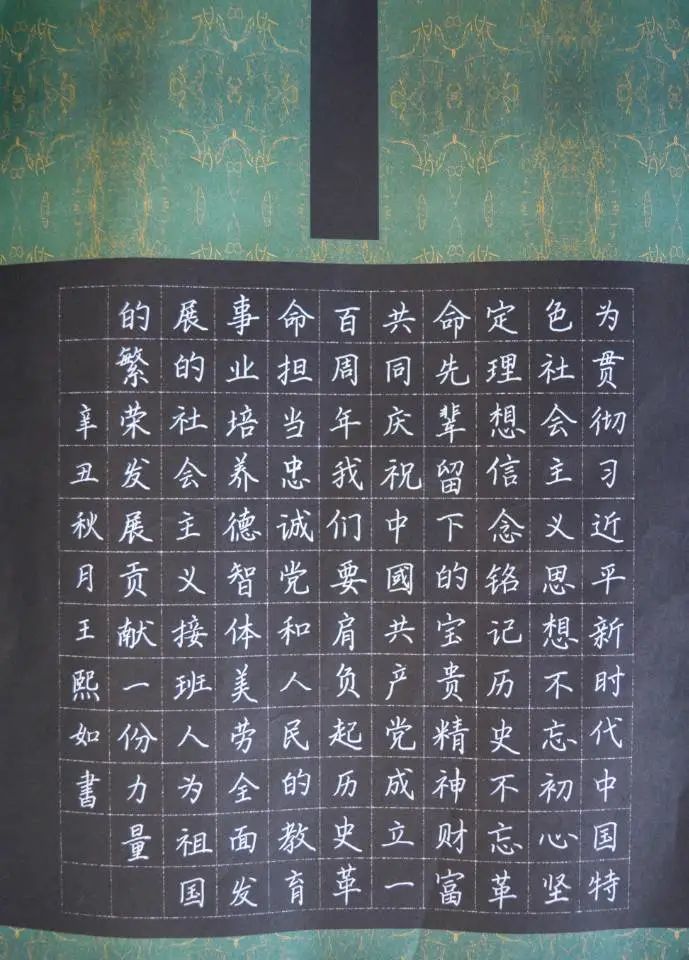 为贯彻习近平新时代中国特
色社会主义思想不忘初心坚
定理想信念铭记历史不忘革
命先辈留下的宝贵精神财富
共同庆祝中國共产党成立一
百周年我们要肩负起历史革
命担当忠诚党和人民的教育
事业培养德智体美劳全面发
展的社会主义接班人为祖国
的繁荣发展贡献一份力量
辛丑秋月王熙如書